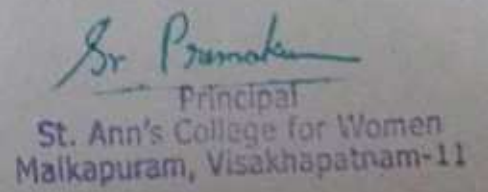 Sr Premakum
Principal
St. Ann's College for Women
Malkapuram, Visakhapatnam-11